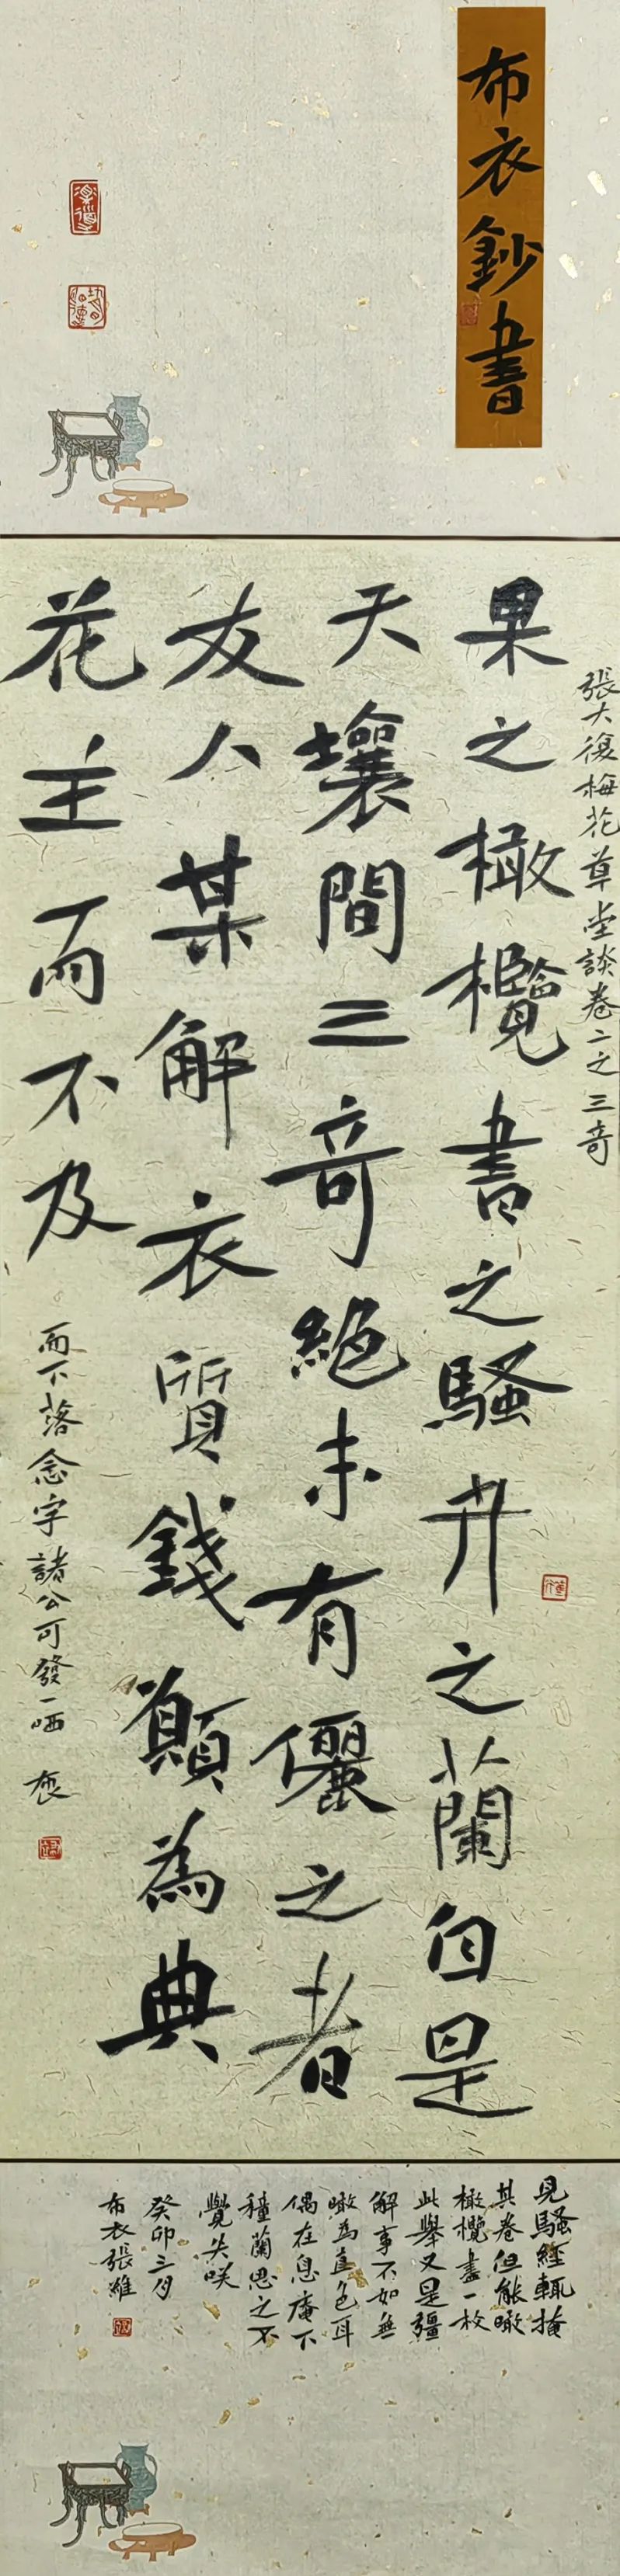 布衣鈔書
張大復梅花草堂談卷二之三奇
果之橄欖書之騷卉之蘭自是
天壤間三奇絕未有儷之者
友人某解衣質錢願為典
花主而不及
而下落念字諸公可發一哂
見騷經輒掩
其卷但能噉
橄欖盡一枚
此舉又是彊
解事不如無
噉為直色耳
偶在息庵下
種蘭思之不
覺失咲
癸卯三月
布衣張維